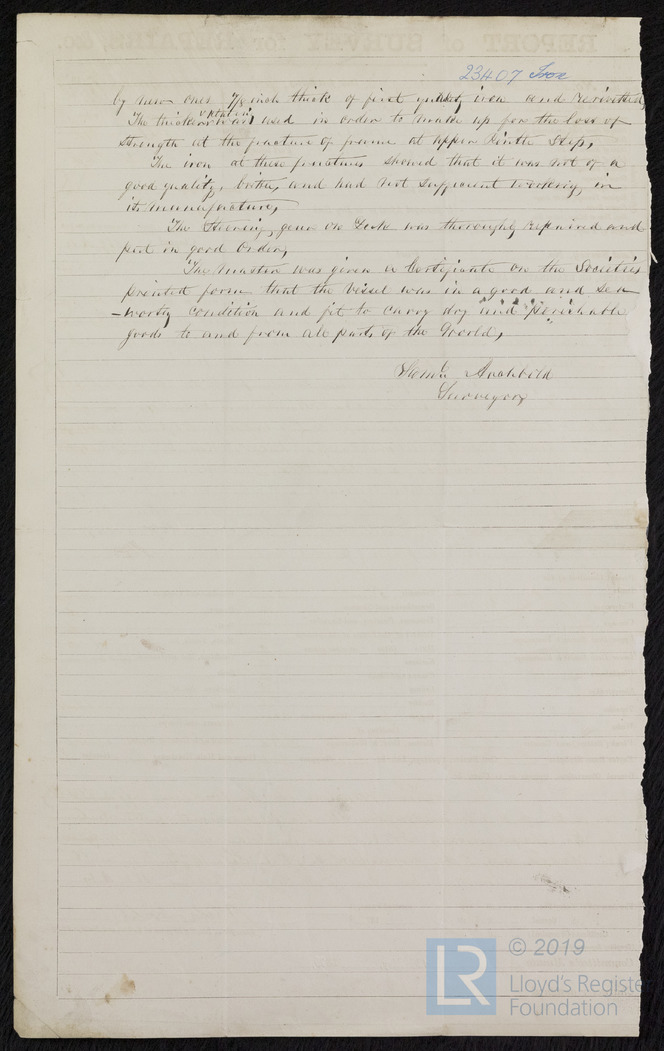 REPORT of SURVEY for REPAIRS, &c.
23407 Iron
by new ones 7/8 inch thick of first quality iron and Rerivetted
The thicker plating was used in order to make up for the loss of
strength at the fracture of frame at upper Pintle Step,
The iron at these fractures showed that it was not of a
good quality, brittle, and had not sufficient working in
its Manufacture,
The Steering gear on Deck was thoroughly repaired and
put in good Order,
The Master was given a Certificate on the Societies
printed form that the Vessel was in a good and Sea
-worthy condition and fit to carry dry and perishable
goods to and from all parts of the World,
Archbold
Surveyor
LR
© 2019
Lloyd's Register
Foundation